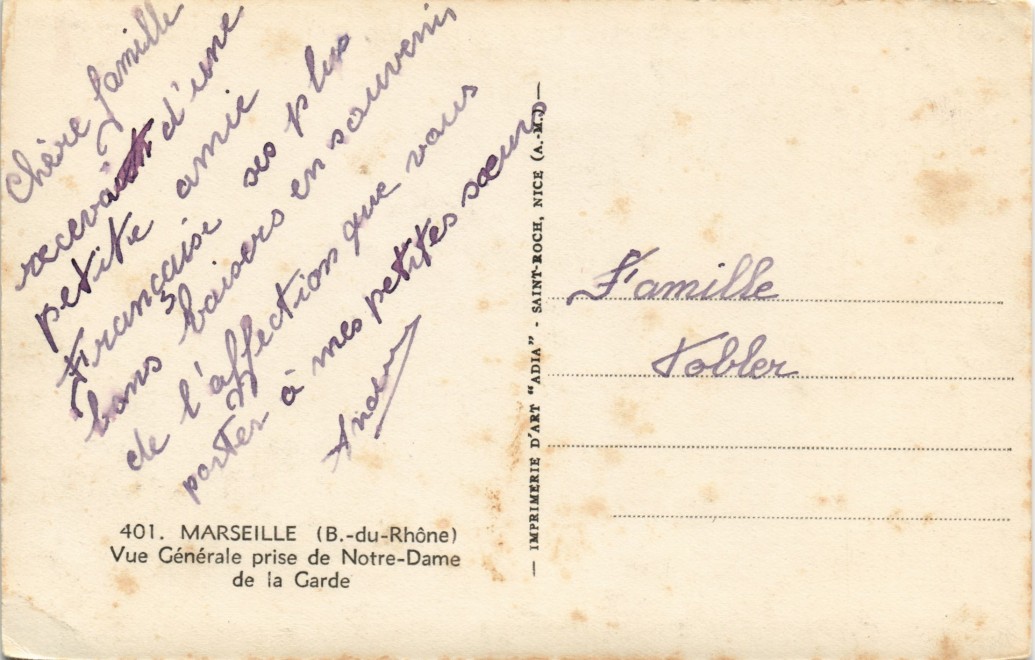 Chère famille
recevait d'une
petite amie
Française ses plus
bons baisers en souvenir
de l'affection que vous
porter à mes petites sœurs
401. MARSEILLE (B.-du-Rhône)
Vue Générale prise de Notre-Dame
de la Garde
— IMPRIMERIE D'ART "ADIA" - SAINT-ROCH, NICE (A.-M.) —
Famille
Tobler